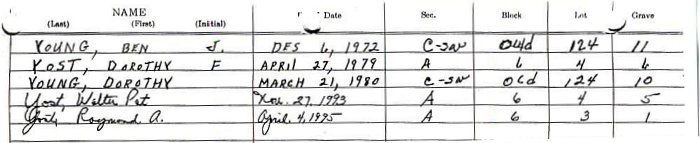 NAME Date Sec. Block Lot Grave
(Last) (First) (Initial)
YOUNG, BEN J. DES 6, 1972 C-SW Old 124 11
YOST, DOROTHY F APRIL 27, 1979 A 6 4 6
YOUNG, DOROTHY MARCH 21, 1980 C-SW Old 124 10
Yost, Walter Pat Nov. 27, 1993 A 6 4 5
Yost, Raymond A. April. 4, 1995 A 6 3 1